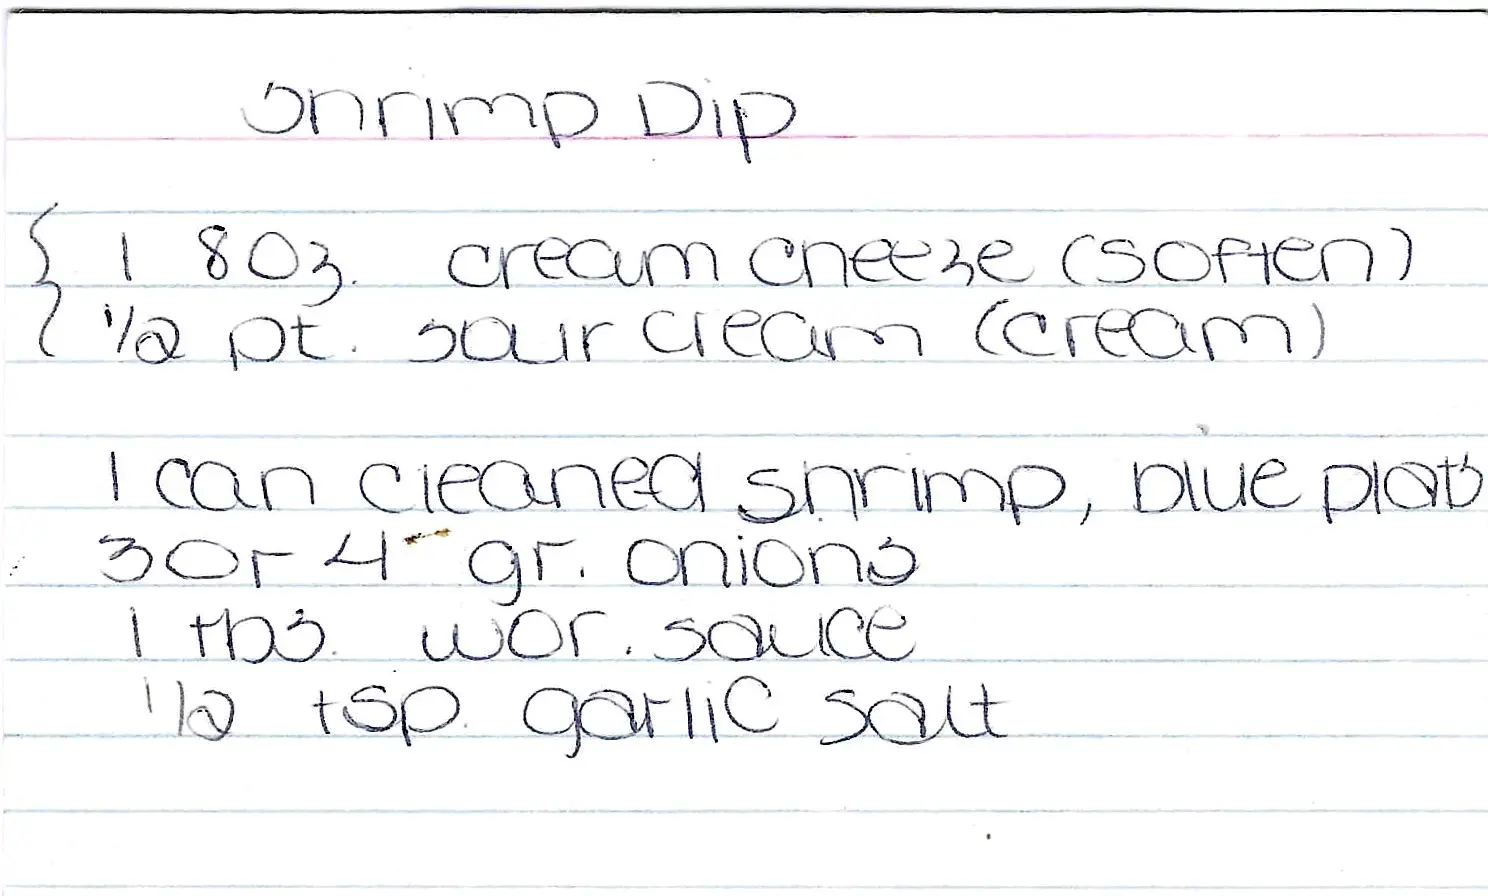 Shrimp Dip
{ 1 8oz. cream cheeze (soften)
1/2 pt. sour cream (cream)
1 can cleaned shrimp, blue plate
3 or 4 gr. onions
1 tbs. wor. sauce
1/2 tsp. garlic salt